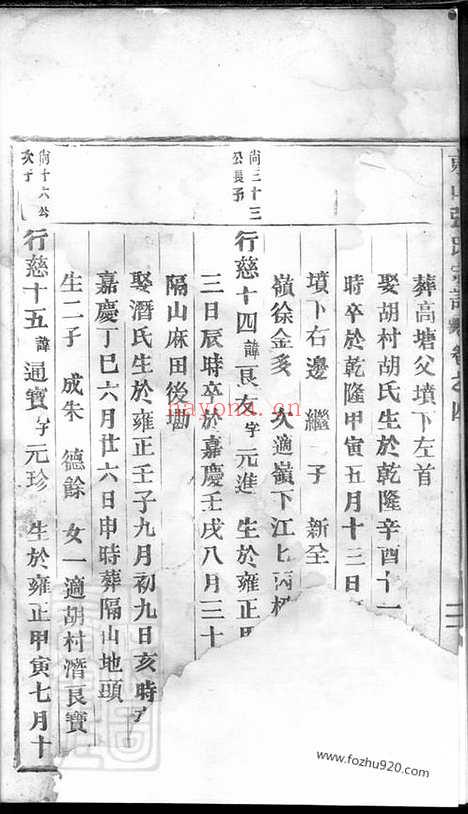 葬高塘父墳下左首
娶胡村胡氏生於乾隆辛酉十一
時卒於乾隆甲寅五月十三日
墳下右邊 繼子 新全
嶺徐金多 久適嶺下江
尚三十三
公長子
行慈十四諱良友字元進 生於雍正
三日辰時卒於嘉慶壬戌八月三十
隔山麻田後塝
娶潛氏生於雍正壬子九月初九日亥時
嘉慶丁巳六月廿六日申時葬隔山地頭
生二子 成朱 德餘 女一適胡村潛良寶
尚十六公
次子
行慈十五諱通寶字元珍 生於雍正甲寅七月十
nayona.cn
www.fozhu920.com